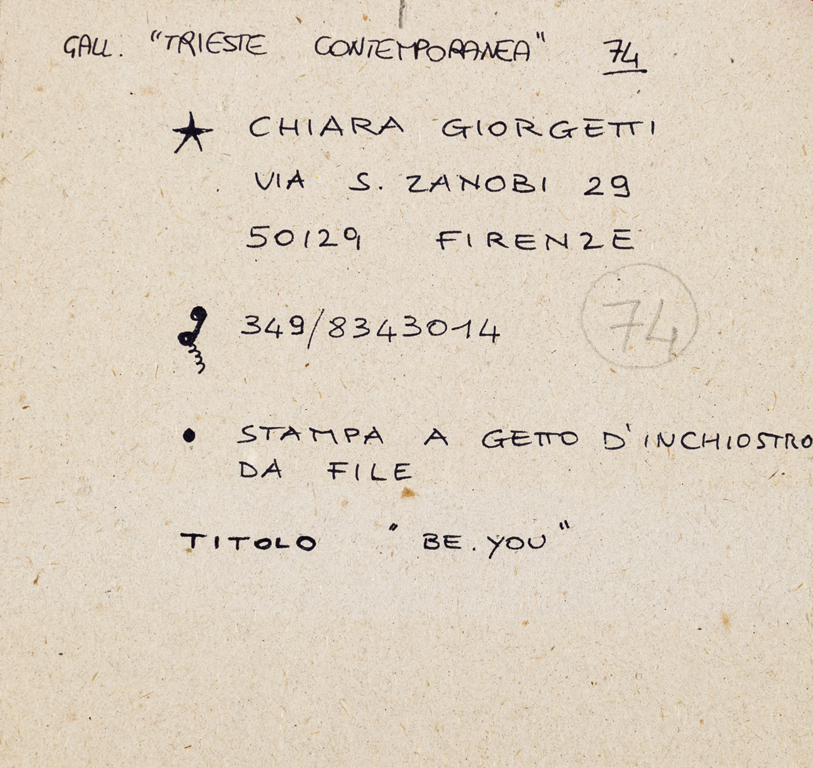 GALL. "TRIESTE CONTEMPORANEA" 74
CHIARA GIORGETTI
VIA S. ZANOBI 29
50129 FIRENZE
349/8343014
74
• STAMPA A GETTO D'INCHIOSTRO
DA FILE
TITOLO "BE.YOU"